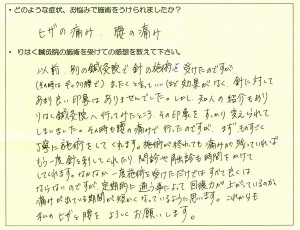 ・どのような症状、お悩みで施術をうけられましたか?
ヒザの痛み、腰の痛み
・りはく鍼灸院の施術を受けての感想を教えて下さい。
以前、別の鍼灸院で針の施術を受けたのですが
(その時はギックリ腰で) まったくと言っていいほど効果がなく、針に対して
あまり良い印象はありませんでした。しかし、知人の紹介もあり
りはく鍼灸院へ行ってみたところ、その印象をすっかり変えられて
しまいました。その時も腰の痛みで行ったのですが、まずものすごく
丁寧に施術をしてくれます。施術が終わっても痛みが残っていれば
もう一度針を刺してくれたり、問診や触診も時間をかけて
してくれます。なかなか一度施術を受けただけではすぐ良くは
ならないのですが、定期的に通う事によって回復力が上がっているのか
痛みが出ている期間が短かくなっているように思います。これからも
私のヒザと腰をよろしくお願いします。